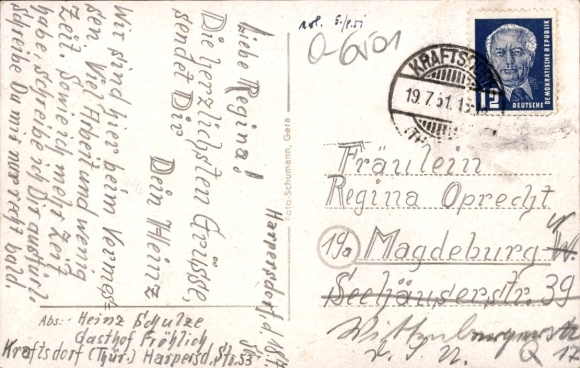 Harpersdorf, d. 18.7.51
Liebe Regina!
Die herzlichsten Grüsse,
sendet Dir
Dein Heinz
Wir sind hier beim Vermes-
sen. Viel Arbeit und wenig
Zeit. Sowie ich mehr Zeit
habe, schreibe ich Dir ausführli-
Schreibe Du mir nur recht bald.
Abs: Heinz Schulze
Gasthof Fröhlich
Kraftsdorf (Thür.) Harpersd. Str. 53
Foto-Schumann, Gera
KRAFTSDORF
19.7.51
12
DEUTSCHE
DEMOKRATISCHE REPUBLIK
Fräulein
Regina Oprecht
19a Magdeburg W.
Seehäuserstr. 39
Q 12